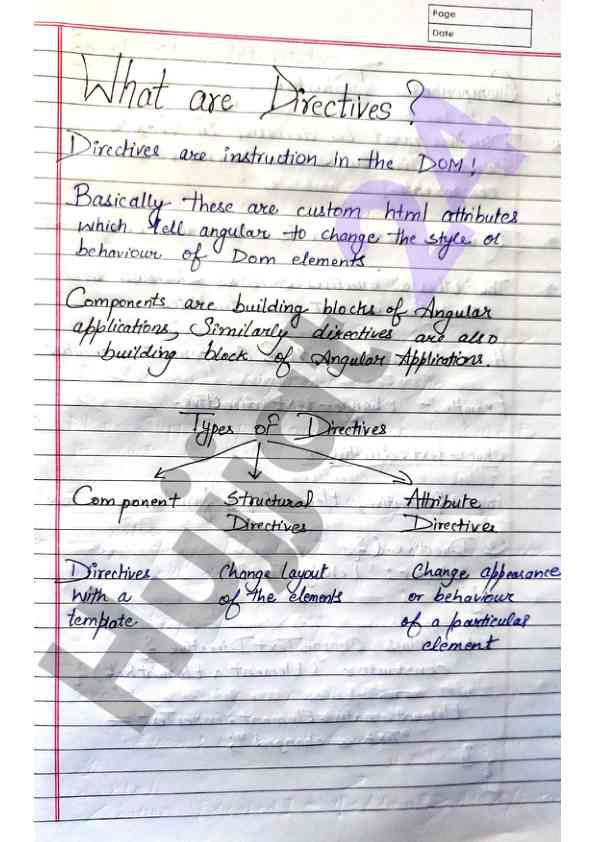 Page
Date
What are Directives?
Directives are instruction in the DOM!
Basically these are custom html attributes
which tell angular to change the style or
behaviour of Dom elements
Components are building blocks of Angular
applications, Similarly directives are also
building block of Angular Applications.
Types of Directives
Component Structural Attribute
Directives Directives
Directives Change layout Change appearance
with a of the elements or behaviour
template of a particular
element